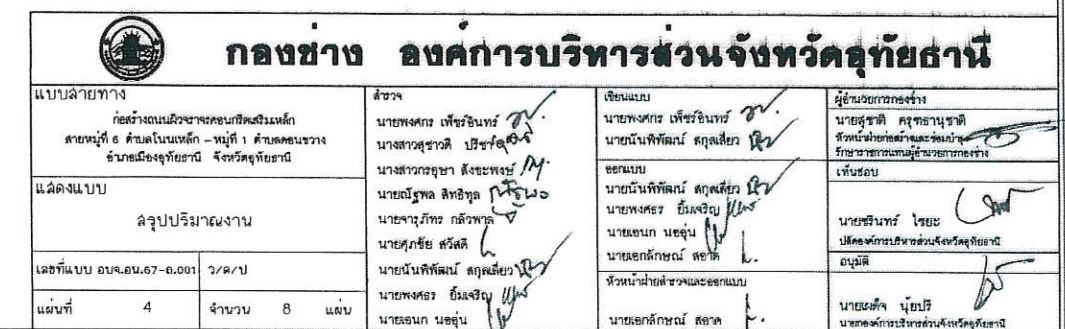 กองช่าง องค์การบริหารส่วนจังหวัดอุทัยธานี
แบบสายทาง
ก่อสร้างถนนผิวจราจรคอนกรีตเสริมเหล็ก
สายหมู่ที่ 6 ตำบลโนนเหล็ก – หมู่ที่ 1 ตำบลดอนขวาง
อำเภอเมืองอุทัยธานี จังหวัดอุทัยธานี
แสดงแบบ
สรุปปริมาณงาน
เลขที่แบบ อบจ.อน.67-ถ.001 ว/ด/ป
แผ่นที่ 4 จำนวน 8 แผ่น
สำรวจ
นายพงศกร เพ็ชร์อินทร์
นางสาวสุชาวดี
นางสาวกรอุษา สังขะพงษ์
นายณัฐพล สิทธิทูล
นายจารุภัทร กลัวพาล
นายศุภชัย สวัสดี
นายนันพิพัฒน์ สกุลเสี่ยว
นายพงศธร ยิ้มเจริญ
นายเอนก นออุ่น
เขียนแบบ
นายพงศกร เพ็ชร์อินทร์
นายนันพิพัฒน์ สกุลเสี่ยว
ออกแบบ
นายนันพิพัฒน์ สกุลเสี่ยว
นายพงศธร ยิ้มเจริญ
นายเอนก นออุ่น
นายเอกลักษณ์ สอาด
หัวหน้าฝ่ายสำรวจและออกแบบ
นายเอกลักษณ์ สอาด
ผู้อำนวยการกองช่าง
นายสุชาติ ครุฑธานุชาติ
หัวหน้าฝ่ายก่อสร้างและซ่อมบำรุง
รักษาราชการแทนผู้อำนวยการกองช่าง
เห็นชอบ
นายชรินทร์ ไรยะ
ปลัดองค์การบริหารส่วนจังหวัดอุทัยธานี
อนุมัติ
นายเผด็จ นุ้ยปรี
นายกองค์การบริหารส่วนจังหวัดอุทัยธานี